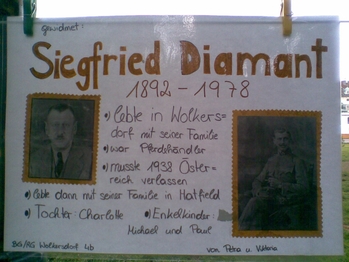 gewidmet!
Siegfried Diamant
1892 - 1978
• lebte in Wolkers=
dorf mit seiner Familie
• war Pferdehändler
• musste 1938 Öster=
reich verlassen
• lebte dann mit seiner Familie in Hatfield
• Tochter Charlotte • Enkelkinder
Michael und Paul
BG/RG Wolkersdorf 4b von Petra u. Viktoria